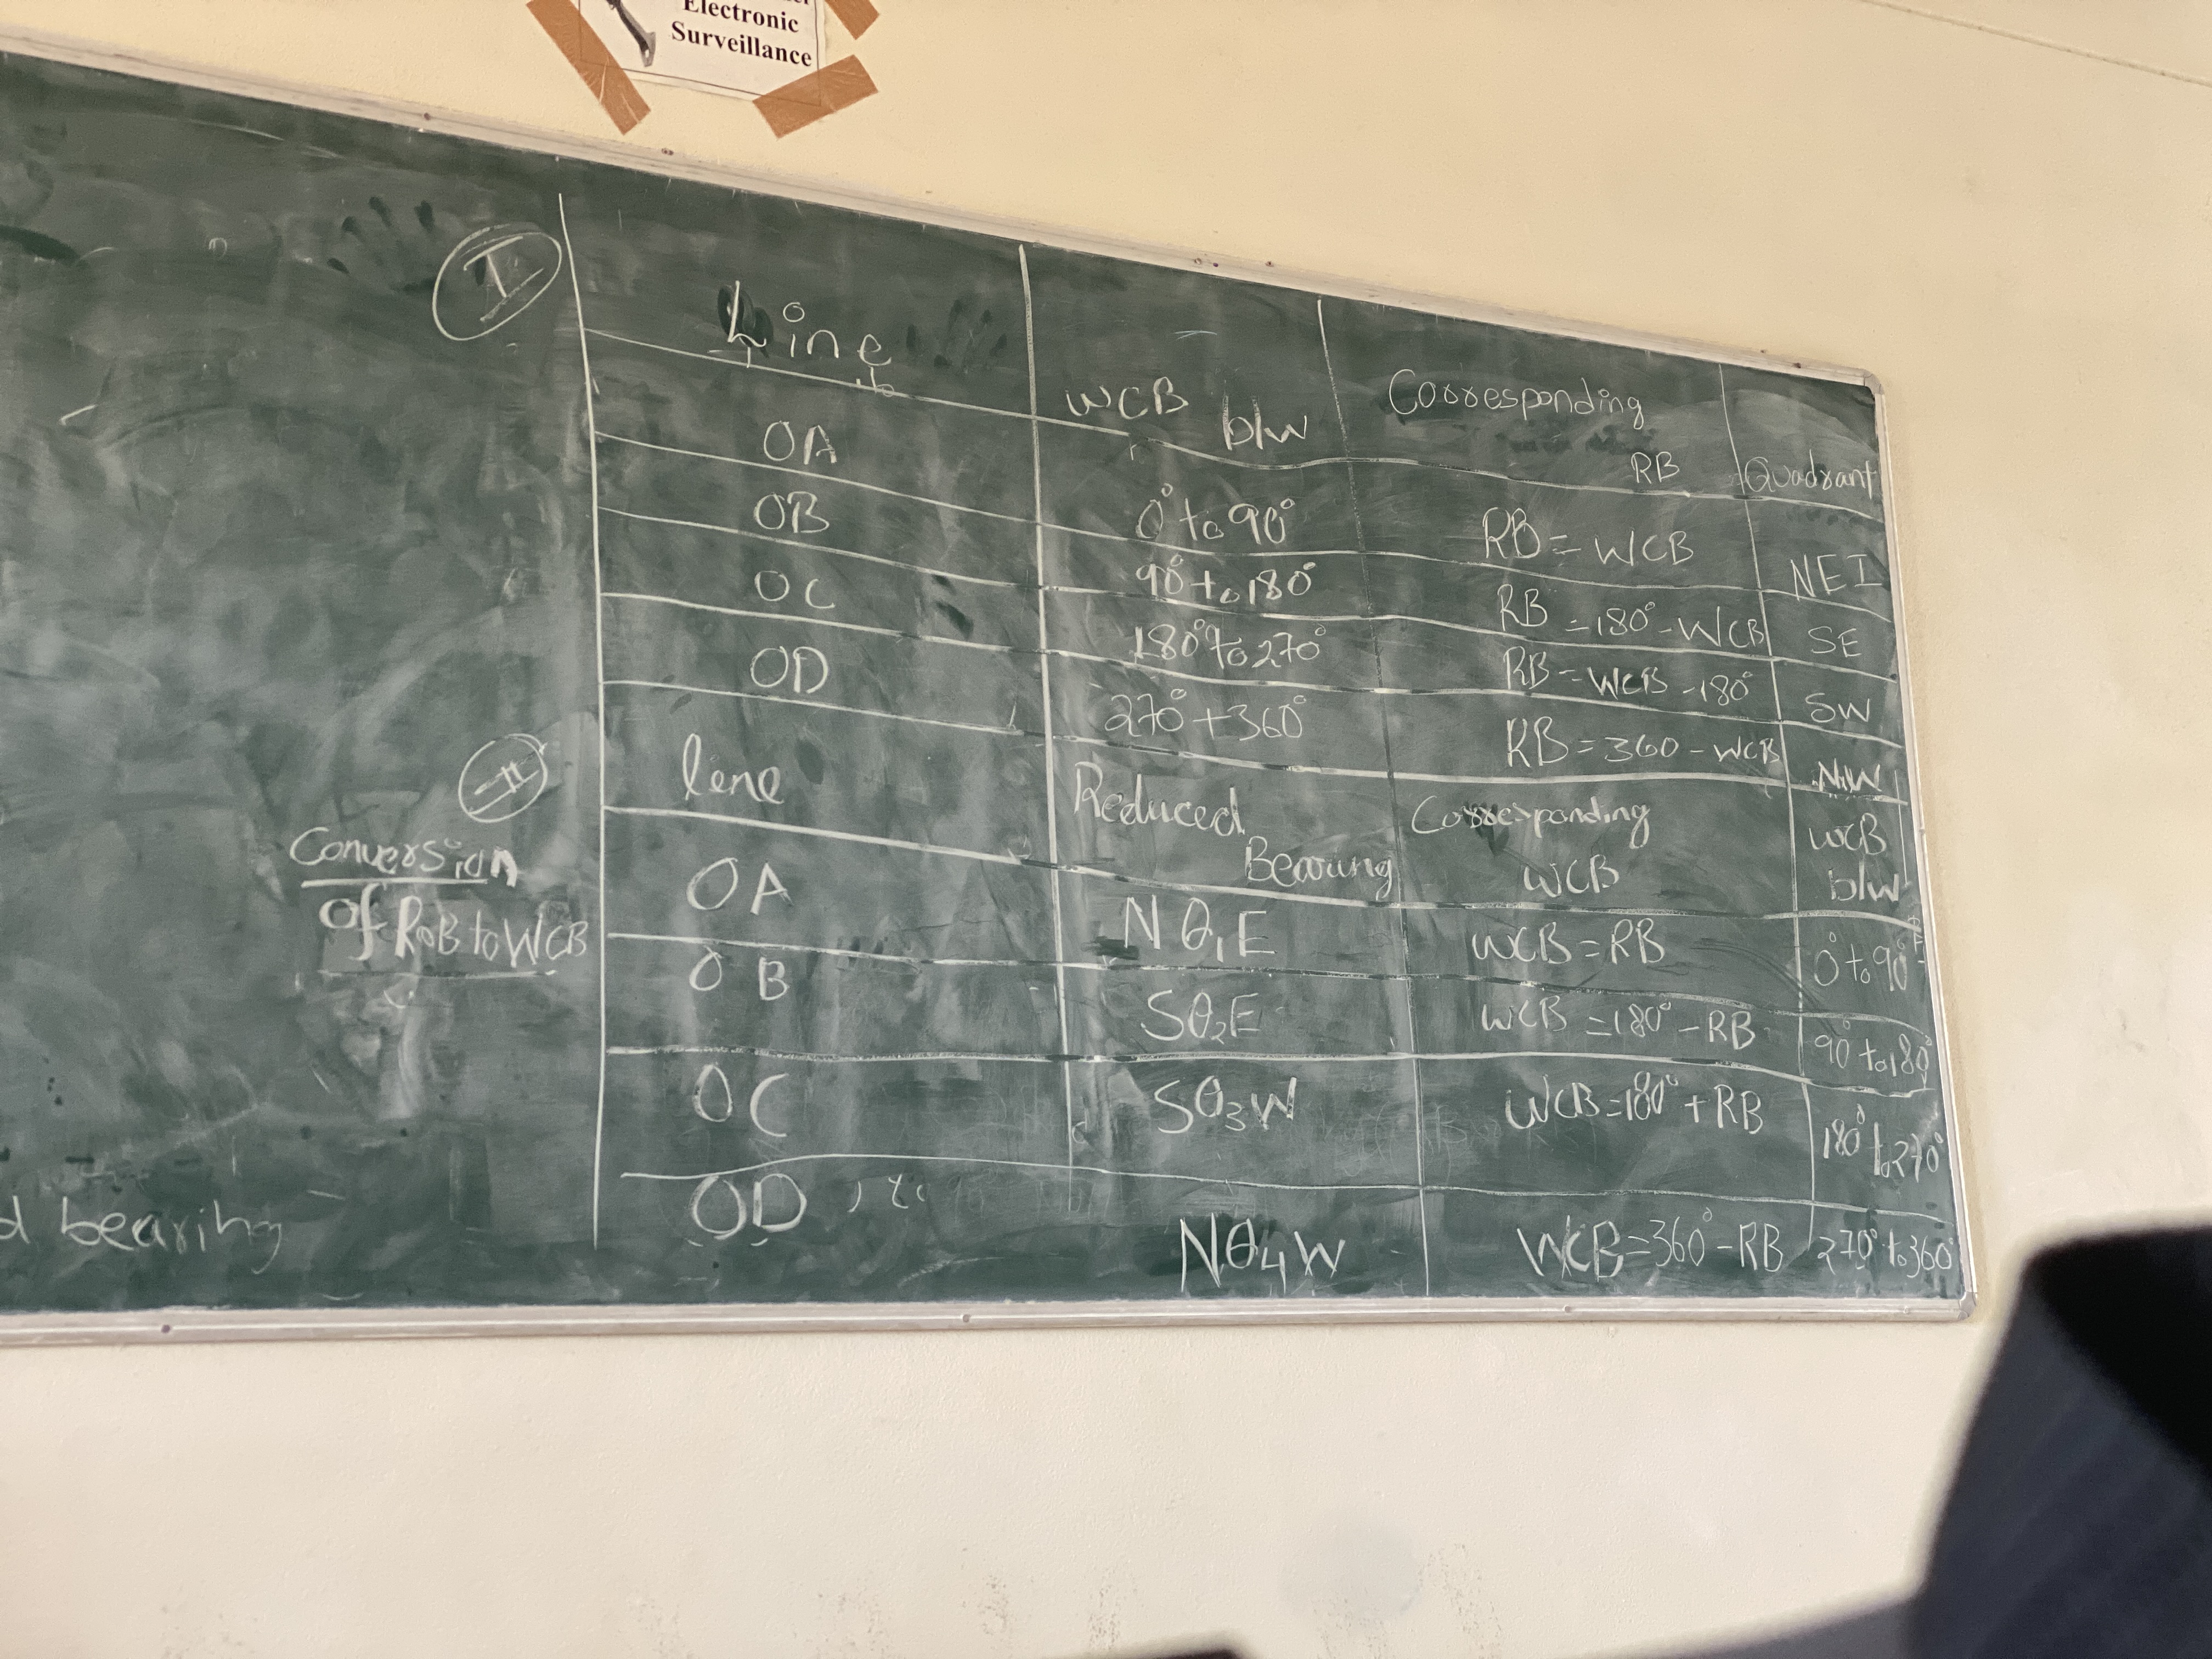 Electronic
Surveillance
I
Line WCB b/w Corresponding RB Quadrant
OA 0° to 90° RB = WCB NE I
OB 90° to 180° RB = 180° - WCB SE
OC 180° to 270° RB = WCB - 180° SW
OD 270° + 360° RB = 360 - WCB NW
II
Conversion
of RoB to WCB
line Reduced Bearing Corresponding WCB WCB b/w
OA N θ₁ E WCB = RB 0° to 90°
OB S θ₂ E WCB = 180° - RB 90° to 180°
OC S θ₃ W WCB = 180° + RB 180° to 270°
OD N θ₄ W WCB = 360° - RB 270° to 360°
d bearing